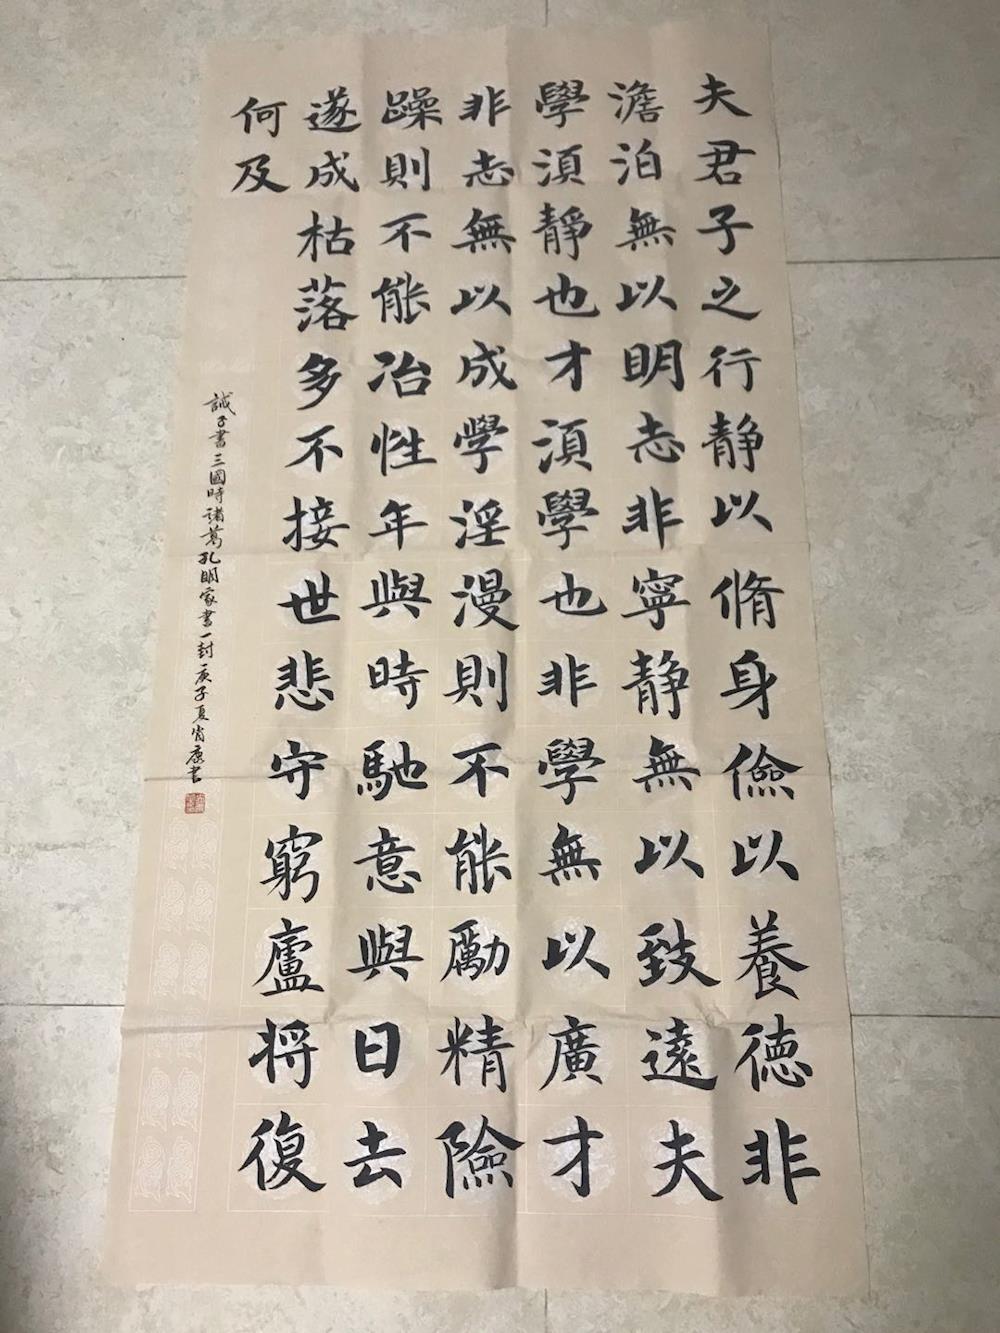 夫君子之行静以脩身儉以養德非
澹泊無以明志非寧静無以致遠夫
學須静也才須學也非學無以廣才
非志無以成學淫漫則不能勵精險
躁則不能冶性年與時馳意與日去
遂成枯落多不接世悲守窮廬将復
何及
誡子書三國時諸葛孔明家書一封庚子夏肖康書